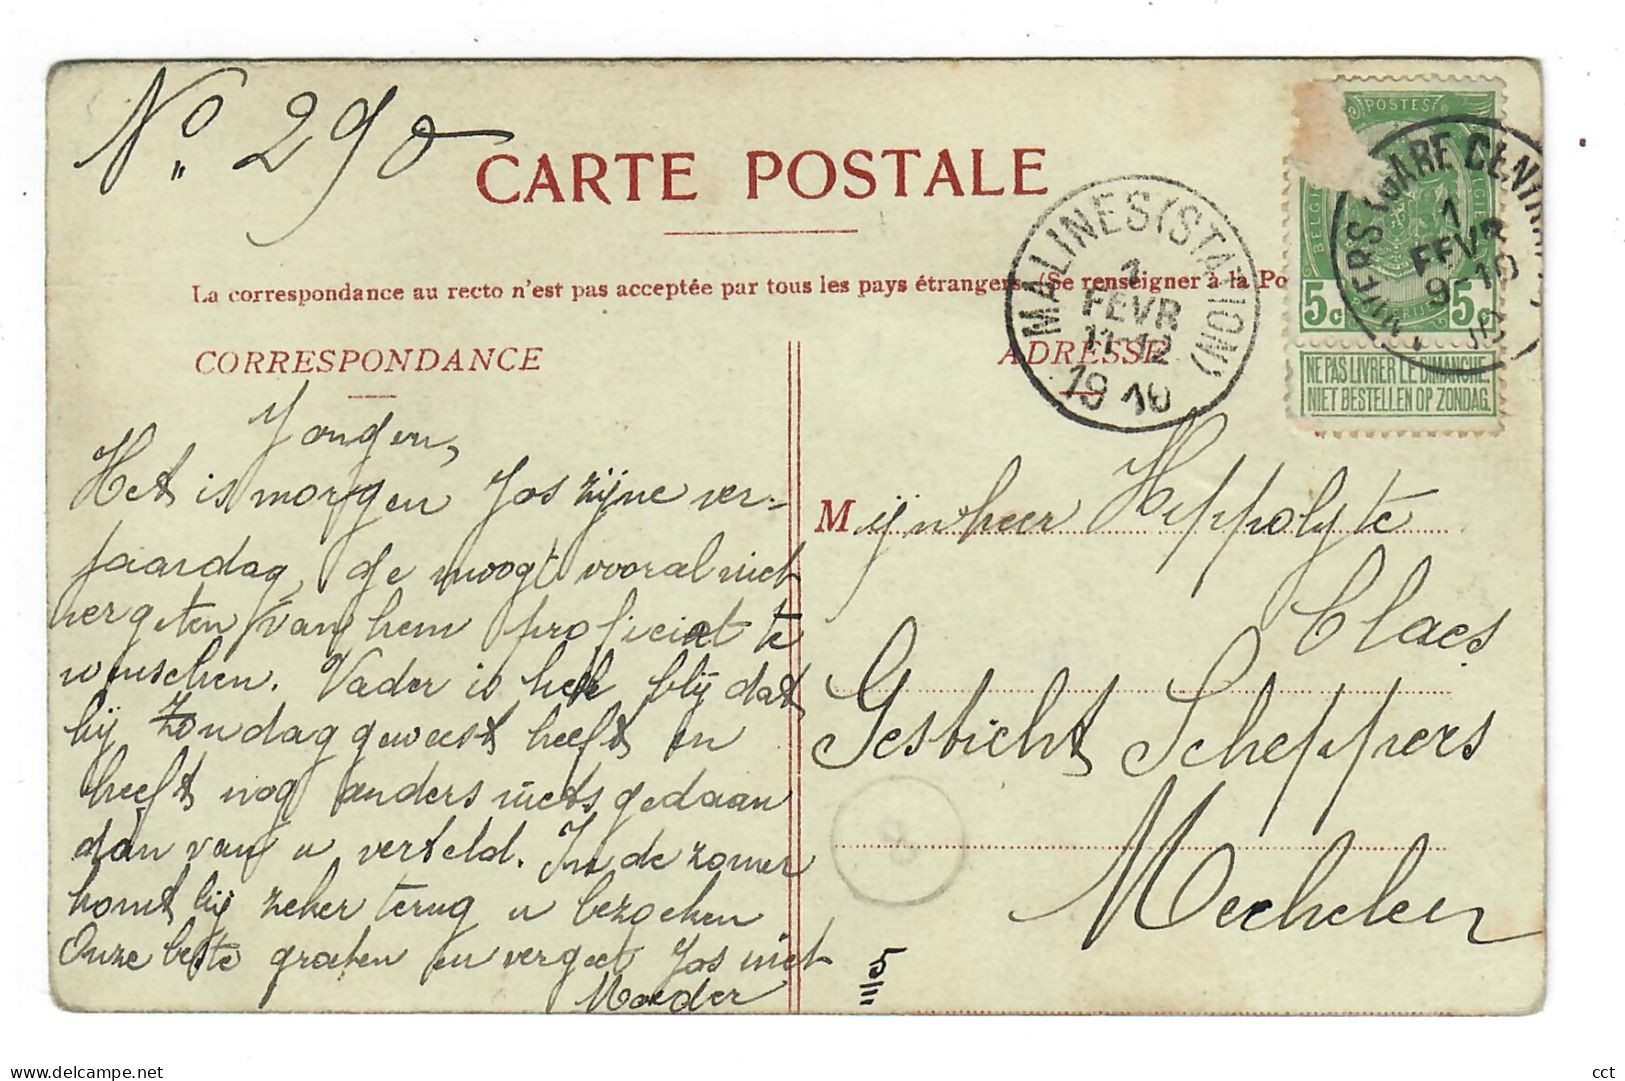 No. 290
CARTE POSTALE
La correspondance au recto n'est pas acceptée par tous les pays étrangers. (Se renseigner à la Po
CORRESPONDANCE
ADRESSE
MALINES (STATION)
1
FEVR
11-12
1910
POSTES
5c 5c
NE PAS LIVRER LE DIMANCHE
NIET BESTELLEN OP ZONDAG
GARE CENTRA
1
FEVR
9 10
Jongen,
Het is morgen Jos zijne ver-
jaardag, ge moogt vooral niet
vergeten van hem proficiat te
wenschen. Vader is heel blij dat
hij Zondag geweest heeft en
heeft nog anders niets gedaan
dan van u verteld. In de zomer
komt hij zeker terug u bezoeken
Onze beste groeten en vergeet Jos niet
Moeder
Mijnheer Hippolyte
Claes
Gesticht Scheppers
Mechelen
cct